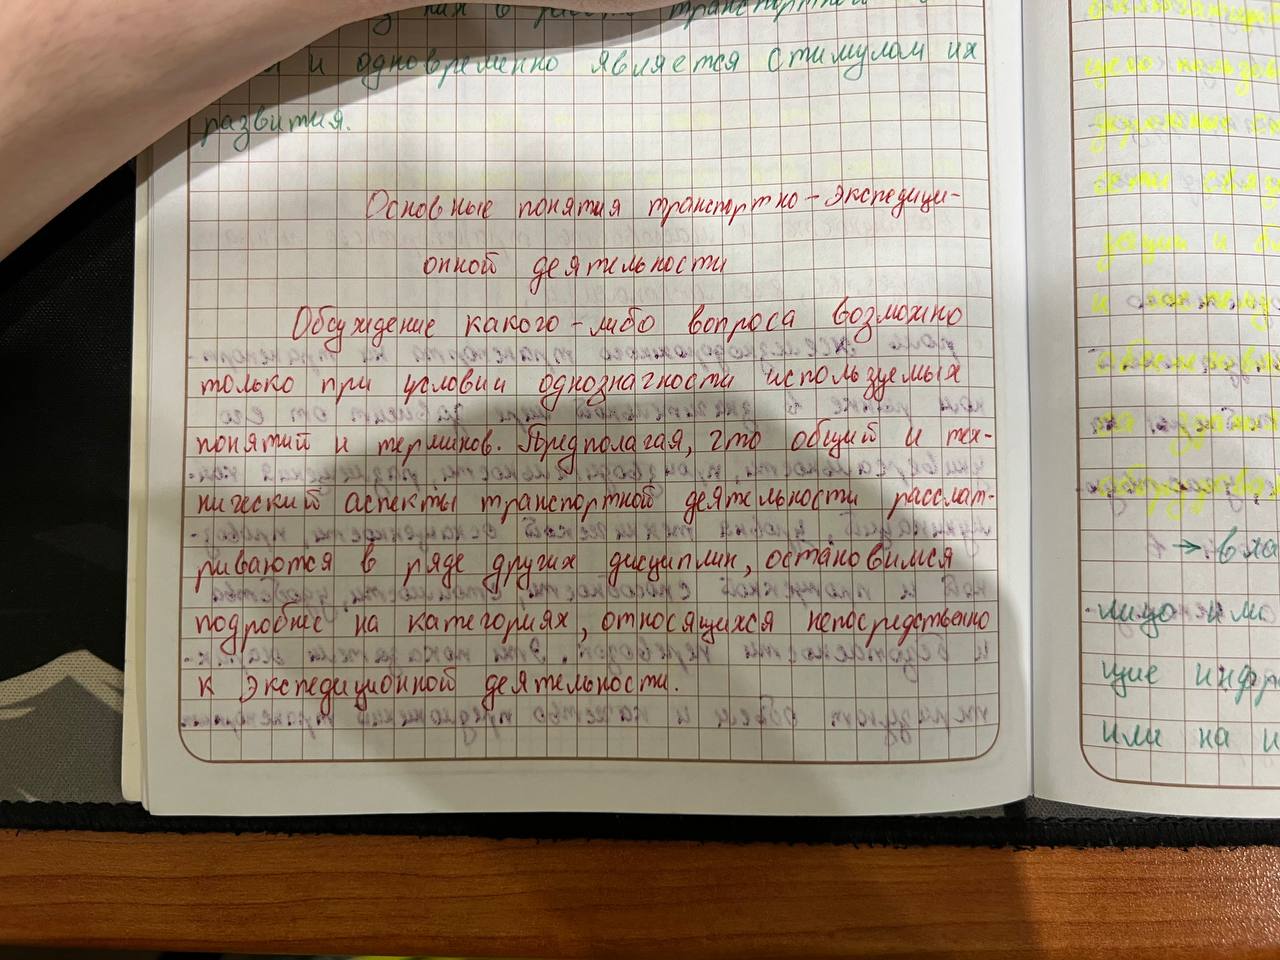 в транспортной
и одновременно является стимулом их
развития.
Основные понятия транспортно-экспедици-
онной деятельности
Обсуждение какого-либо вопроса возможно
только при условии однозначности используемых
понятий и терминов. Предполагая, что общий и тех-
нический аспекты транспортной деятельности рассмат-
риваются в ряде других дисциплин, остановимся
подробнее на категориях, относящихся непосредственно
к экспедиционной деятельности.
и
→ в
лицо и
щие
или на